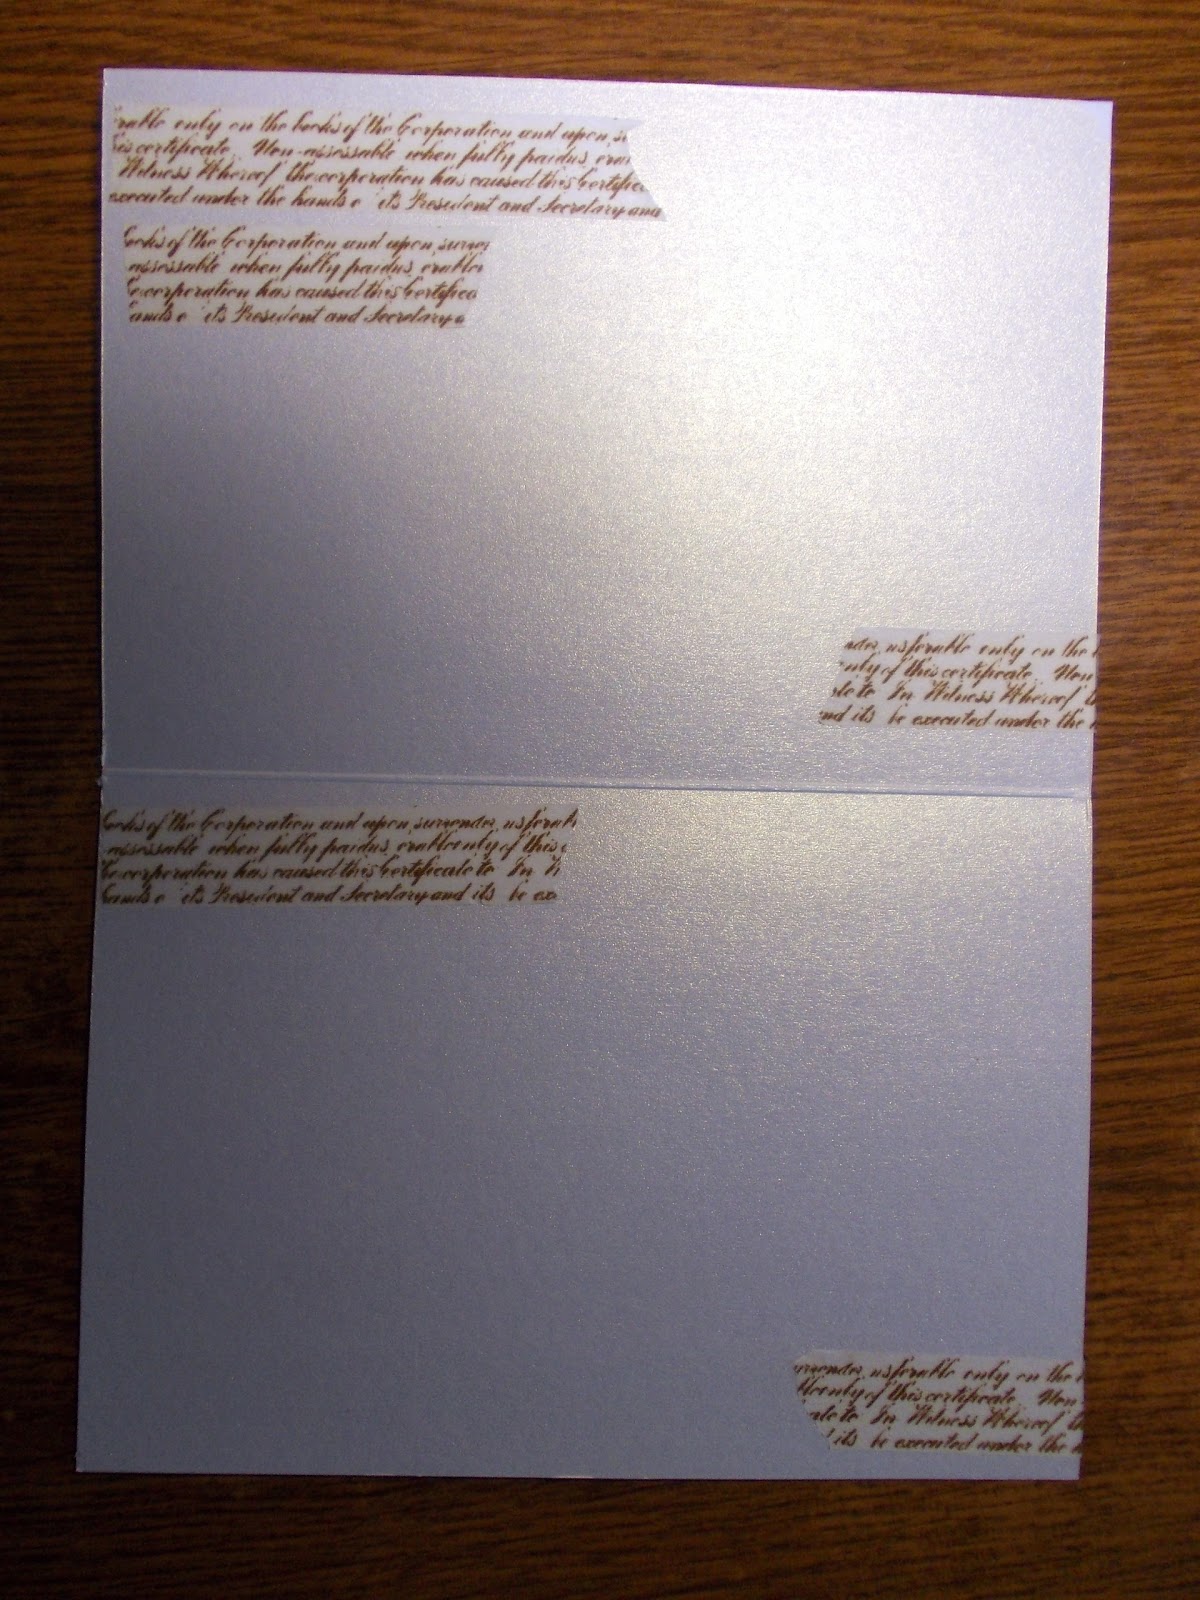 only on the books of the Corporation and upon
certificate. Non-assessable when fully paidus, 
Witness Whereof the corporation has caused this Certific
executed under the hands o its President and Secretary and
books of the Corporation and upon surren
assessable when fully paidus, erablon
corporation has caused this Certifica
ands o its President and Secretary a
nder, usferable only on the
only of this certificate. Non
ate to In Witness Whereof
and its be executed under the
books of the Corporation and upon surrender, usferabl
assessable when fully paidus, erablonly of this
corporation has caused this Certificate to In
hands o its President and Secretary and its be ex
urrender, usferable only on the
blonly of this certificate. Non
ate to In Witness Whereof
its be executed under the